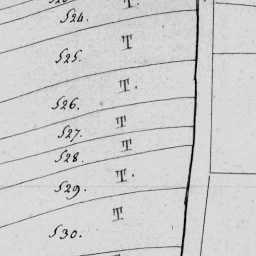 524. T.
525. T
526. T.
527. T
528. T
529. T.
530. T